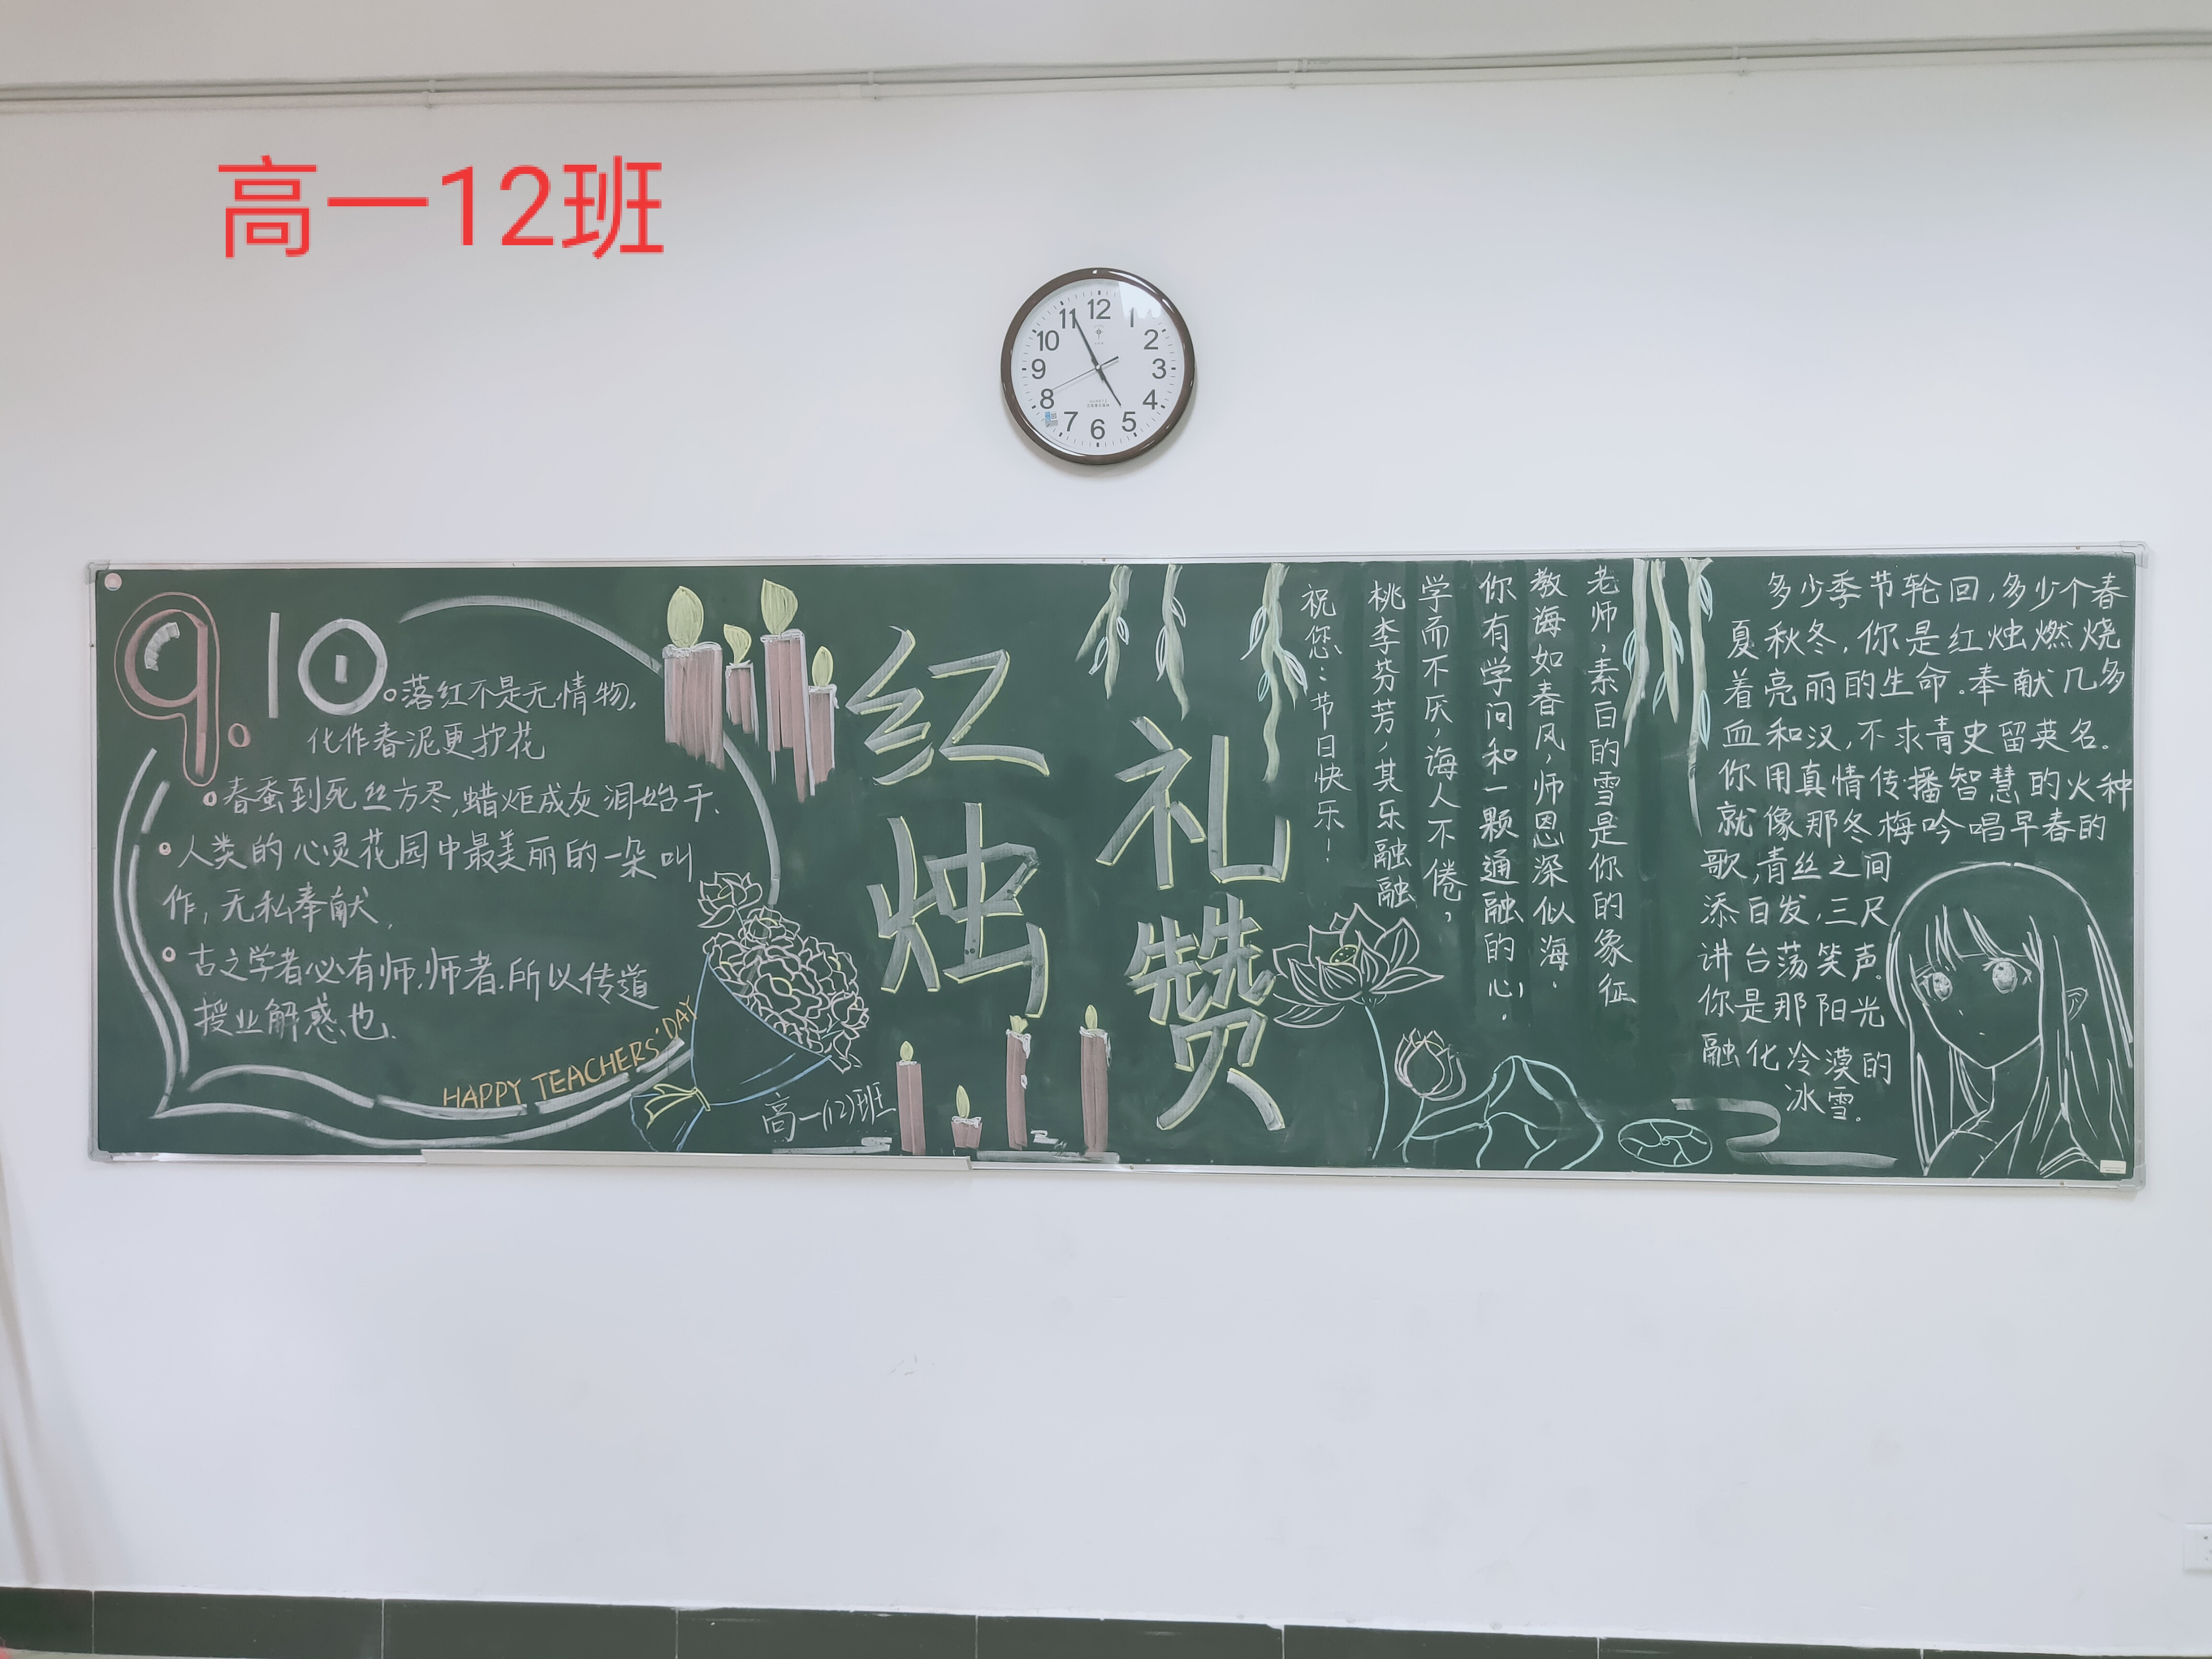 高一12班
12
1
2
3
4
5
6
7
8
9
10
11
9.10
落红不是无情物,
化作春泥更护花
春蚕到死丝方尽,蜡炬成灰泪始干.
人类的心灵花园中最美丽的一朵叫
作,无私奉献.
古之学者必有师,师者.所以传道
授业解惑也.
HAPPY TEACHERS' DAY
高一(12)班
红烛
礼赞
老师,素白的雪是你的象征
教诲如春风,师恩深似海.
你有学问和一颗通融的心,
学而不厌,诲人不倦,
桃李芬芳,其乐融融
祝您:节日快乐!
多少季节轮回,多少个春
夏秋冬,你是红烛燃烧
着亮丽的生命.奉献几多
血和汉,不求青史留英名.
你用真情传播智慧的火种
就像那冬梅吟唱早春的
歌,青丝之间
添白发,三尺
讲台荡笑声.
你是那阳光
融化冷漠的
冰雪.